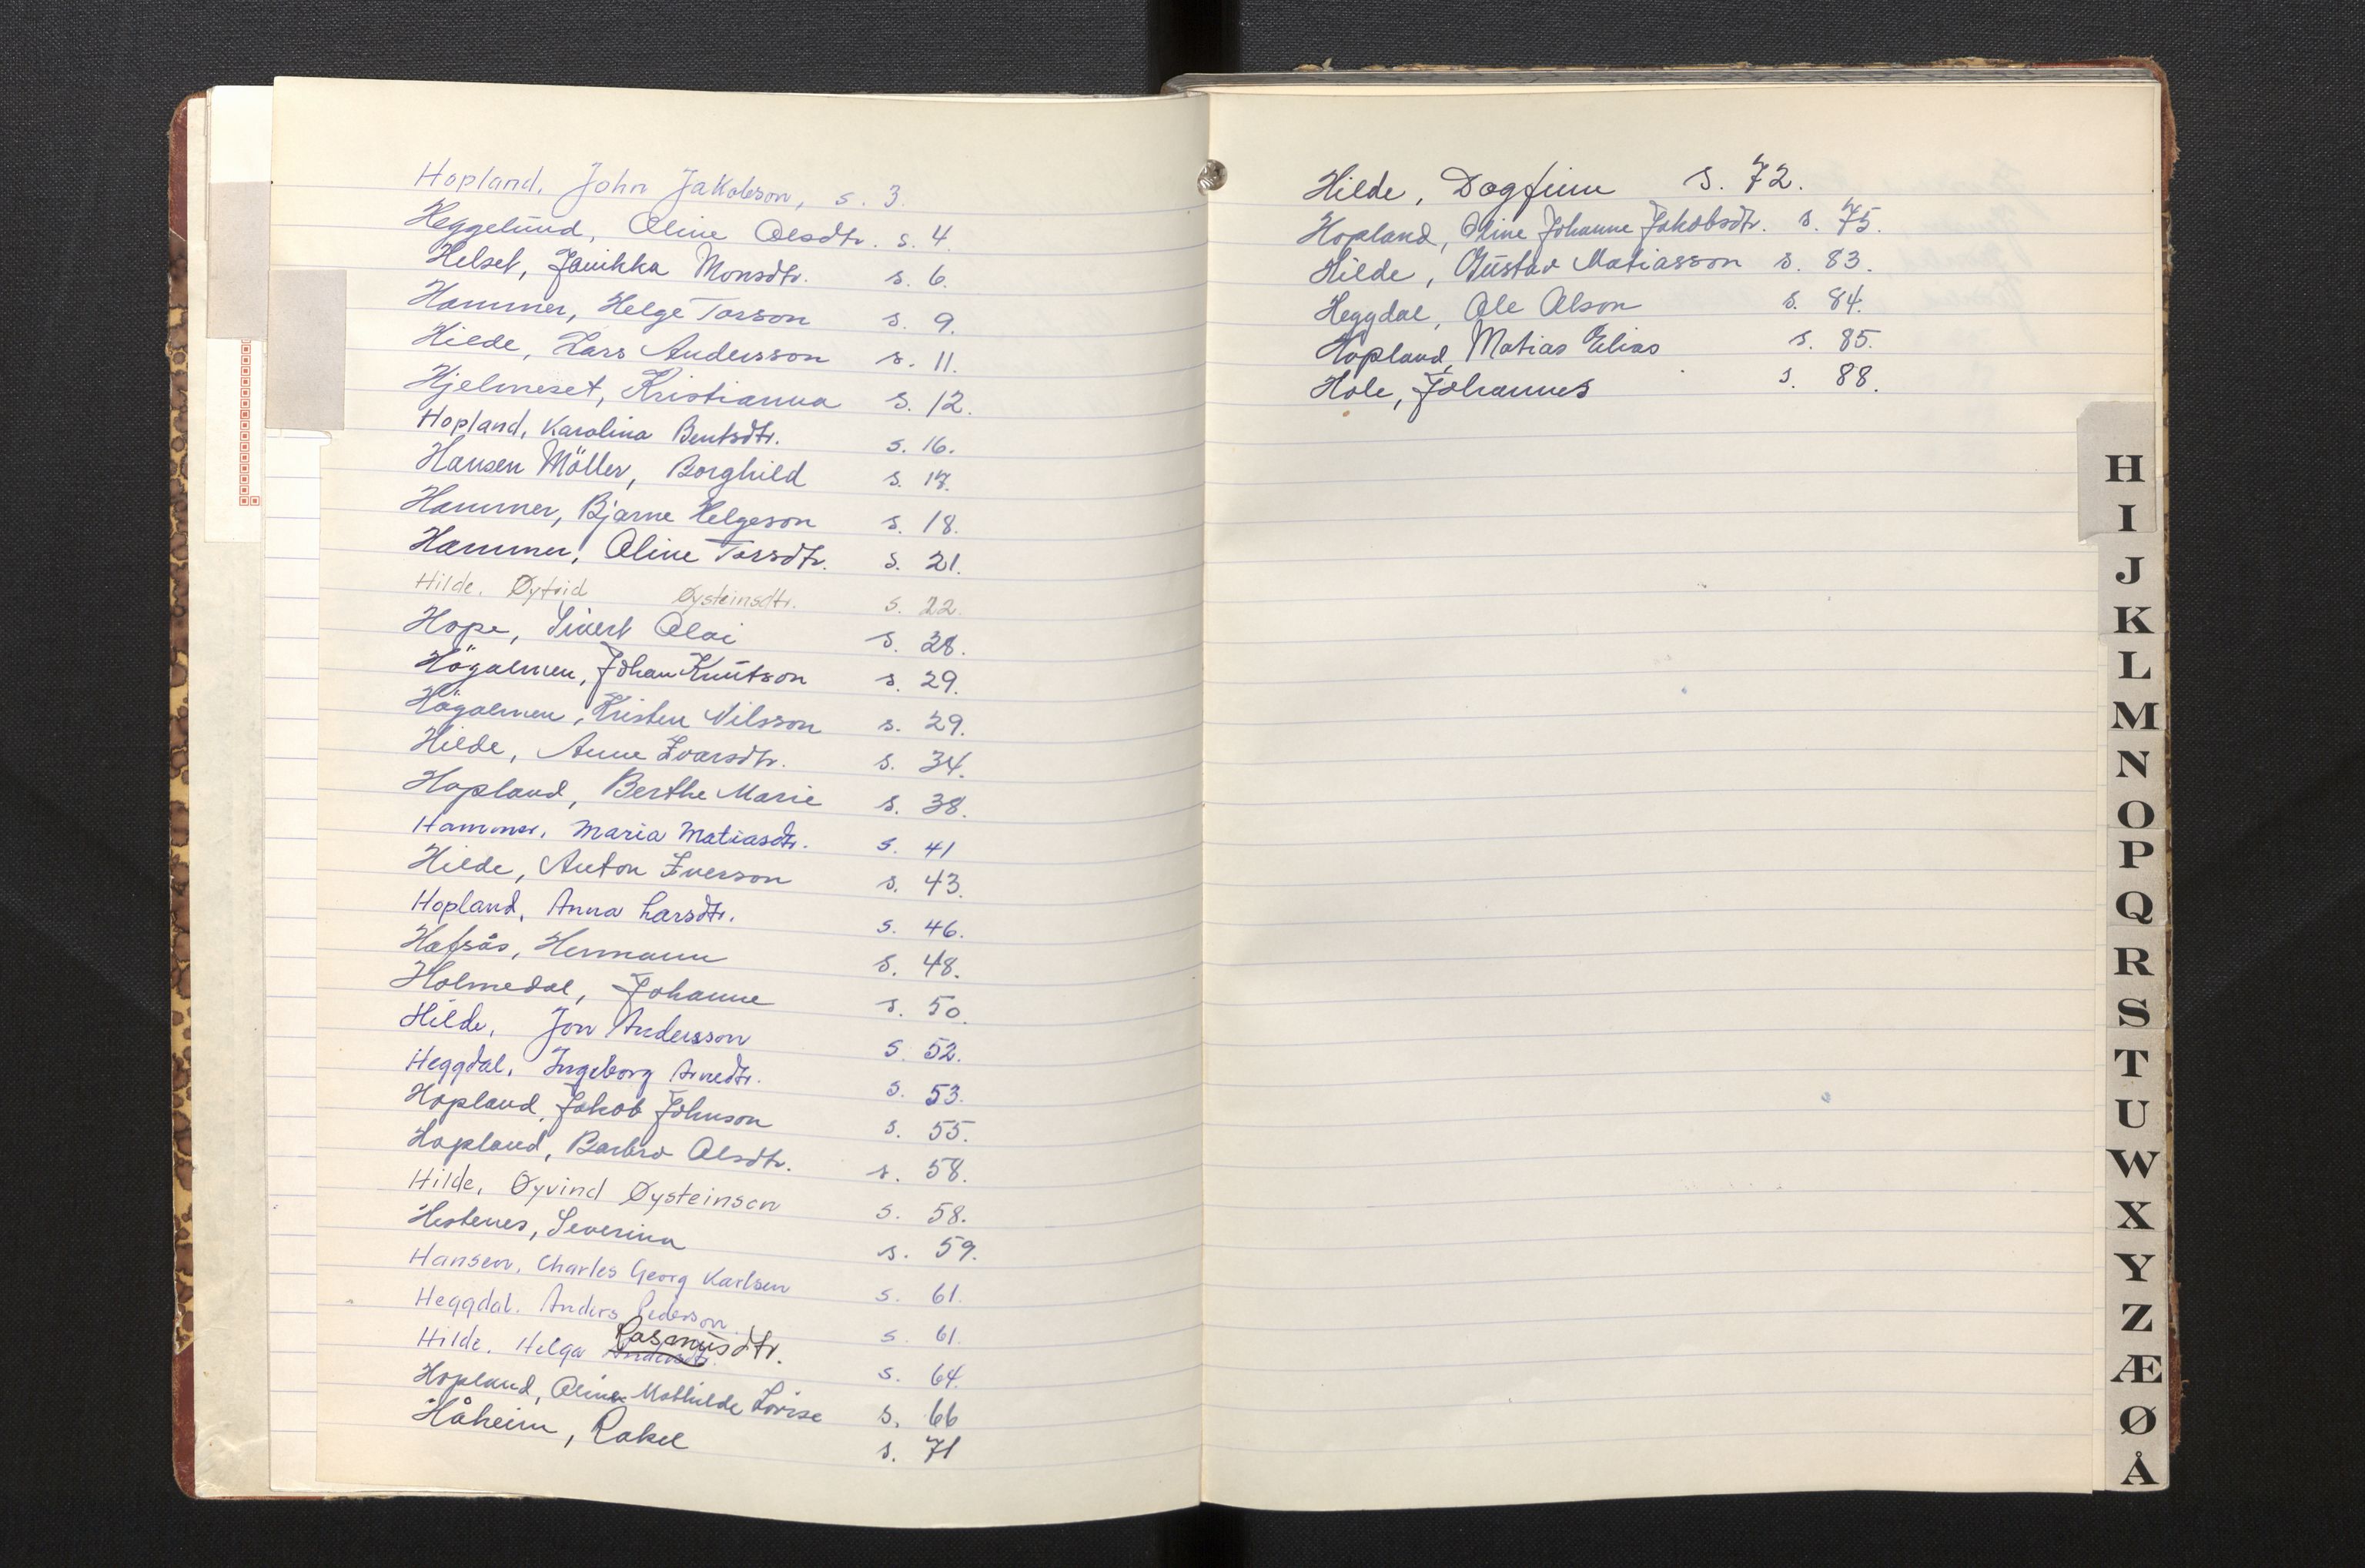 Hopland, John Jakobson, s. 3.
Heggelund, Oline Olsdtr. s. 4.
Helset, Jannikka Monsdtr. s. 6.
Hammer, Helge Torson s. 9.
Hilde, Lars Andersson s. 11.
Hjelmeset, Kristianna s. 12.
Hopland, Karolina Bentsdtr. s. 16.
Hansen Möller, Borghild s. 17.
Hammer, Bjarne Helgeson s. 18.
Hammer, Oline Torsdtr. s. 21.
Hilde, Øyfrid Øysteinsdtr. s. 22.
Hope, Sivert Olai s. 28.
Högalmen, Johan Knutson s. 29.
Högalmen, Kristen Nilsson s. 29.
Hilde, Anne Ivarsdtr. s. 34.
Hopland, Berthe Marie s. 38.
Hammer, Maria Matiasdtr. s. 41
Hilde, Anton Iverson s. 43.
Hopland, Anna Larsdtr. s. 46.
Hafsås, Hermann s. 48.
Holmedal, Johanne s. 50.
Hilde, Jon Andersson s. 52.
Heggdal, Ingeborg Arnedtr. s. 53.
Hopland, Jakob Johnson s. 55.
Hopland, Barbro Olsdtr. s. 58.
Hilde, Øyvind Øysteinson s. 58.
Hestenes, Severina s. 59.
Hansen, Charles Georg Karlsen s. 61.
Heggdal, Anders Pederson s. 61.
Hilde, Helga Andersdtr. Rasmusdtr. s. 64.
Hopland, Olina Mathilde Lovise s. 66
Håheim, Rakel s. 71
Hilde, Dagfinn s. 72.
Hopland, Oline Johanne Jakobsdtr. s. 75.
Hilde, Gustav Matiasson s. 83.
Heggdal, Ole Olson s. 84.
Hopland, Matias Elias s. 85.
Hole, Johannes s. 88.
H
I
J
K
L
M
N
O
P
Q
R
S
T
U
W
X
Y
Z
Æ
Ø
Å